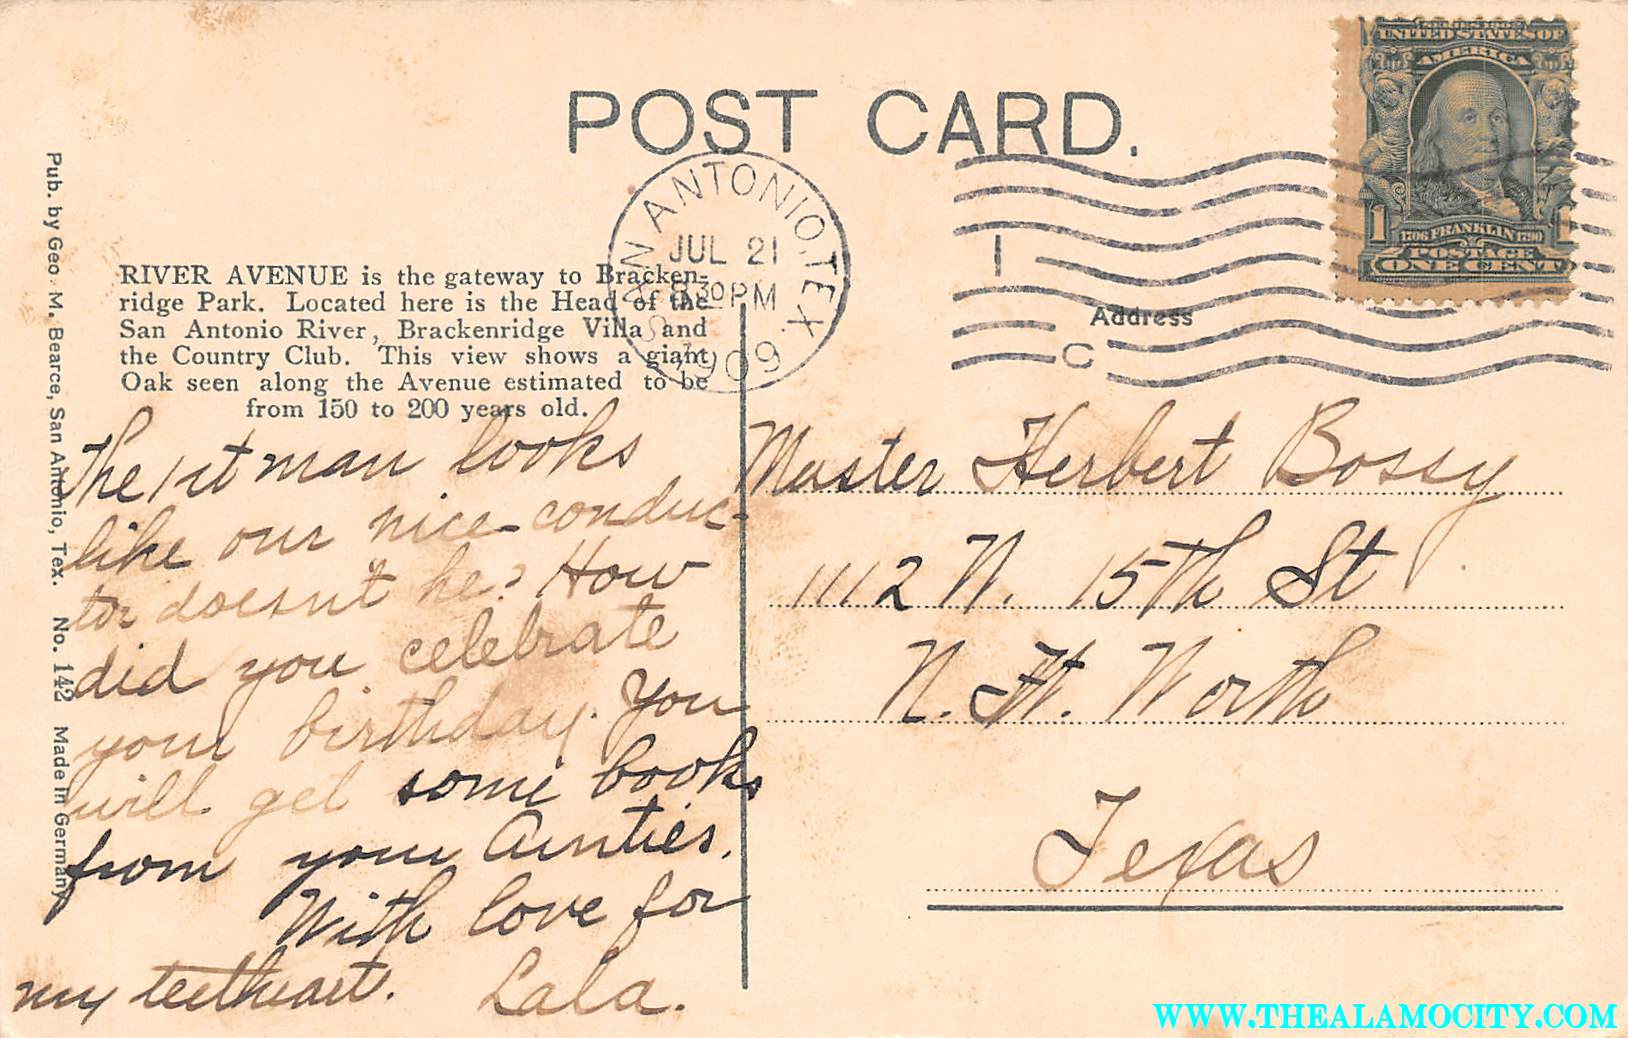 POST CARD.
SERIES 1902
UNITED STATES OF
AMERICA
1 1
1706 FRANKLIN 1790
POSTAGE
ONE CENT
SAN ANTONIO, TEX.
JUL 21
830PM
1909
1
C
Address
RIVER AVENUE is the gateway to Bracken-
ridge Park. Located here is the Head of the
San Antonio River, Brackenridge Villa and
the Country Club. This view shows a giant
Oak seen along the Avenue estimated to be
from 150 to 200 years old.
Pub. by Geo. M. Bearce, San Antonio, Tex. No. 142 Made in Germany
The 1st man looks
like our nice conduc-
tor doesn't he? How
did you celebrate
your birthday. You
will get some books
from your Aunties.
With love for
my teetheart. Lala.
Master Herbert Bossy
1112 N. 15th St
N. Ft. Worth
Texas
WWW.THEALAMOCITY.COM